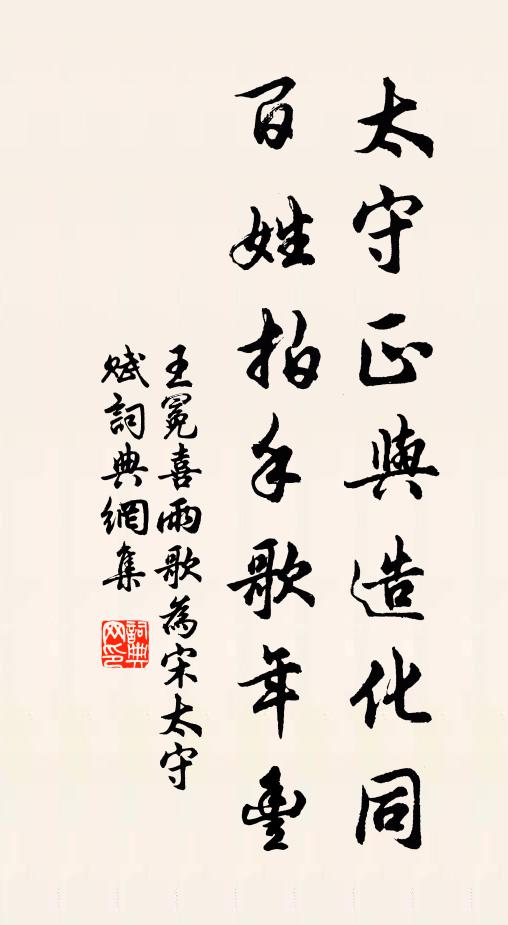 太守正與造化同
百姓拍手歌年豐
王冕喜雨歌為宋太守
賦詞典網集
詞典网印